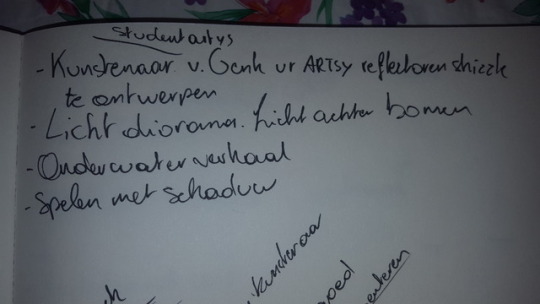 Studentartys
- Kunstenaar v. Genk vr ARTSY reflectoren shizzle
te ontwerpen
- Licht diorama. Licht achter bomen
- Onderwater verhaal
- Spelen met schaduw
kunstenaar